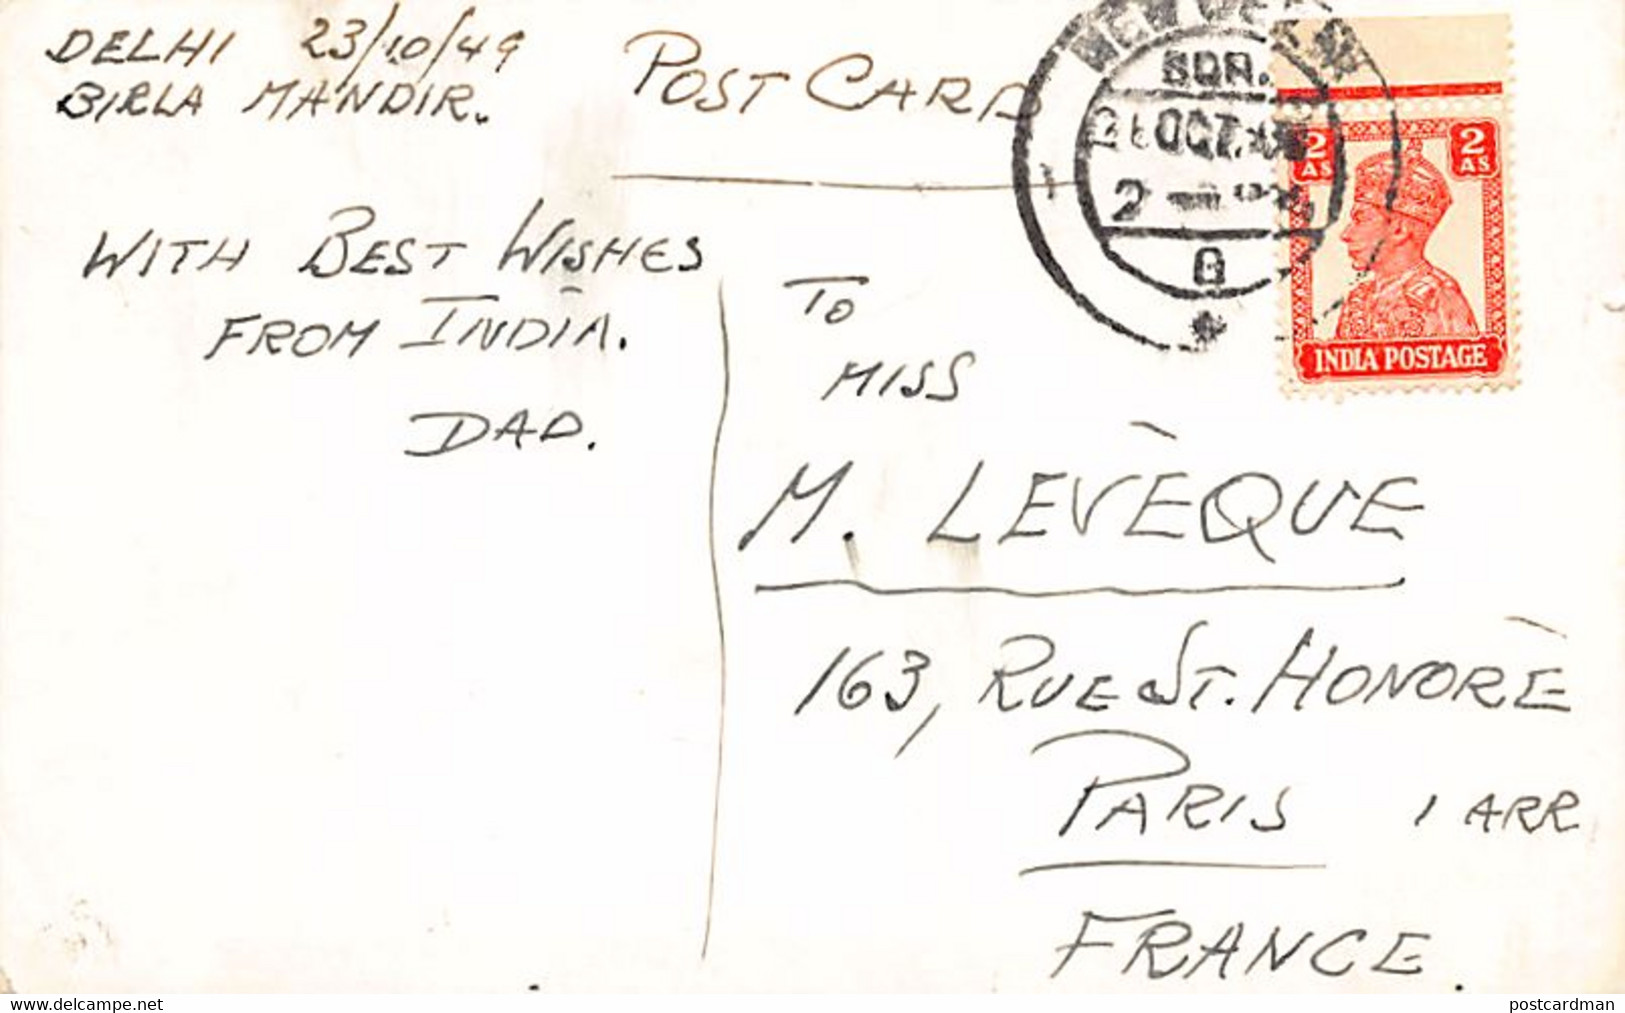 DELHI 23/10/49
BIRLA MANDIR.
POST CARD
WITH BEST WISHES
FROM INDIA.
DAD.
SQR.
OCT.
2
2 AS
2 AS
INDIA POSTAGE
TO
MISS
M. LEVÈQUE
163, RUE ST. HONORÈ
PARIS 1 ARR
FRANCE.
www.delcampe.net
postcardman